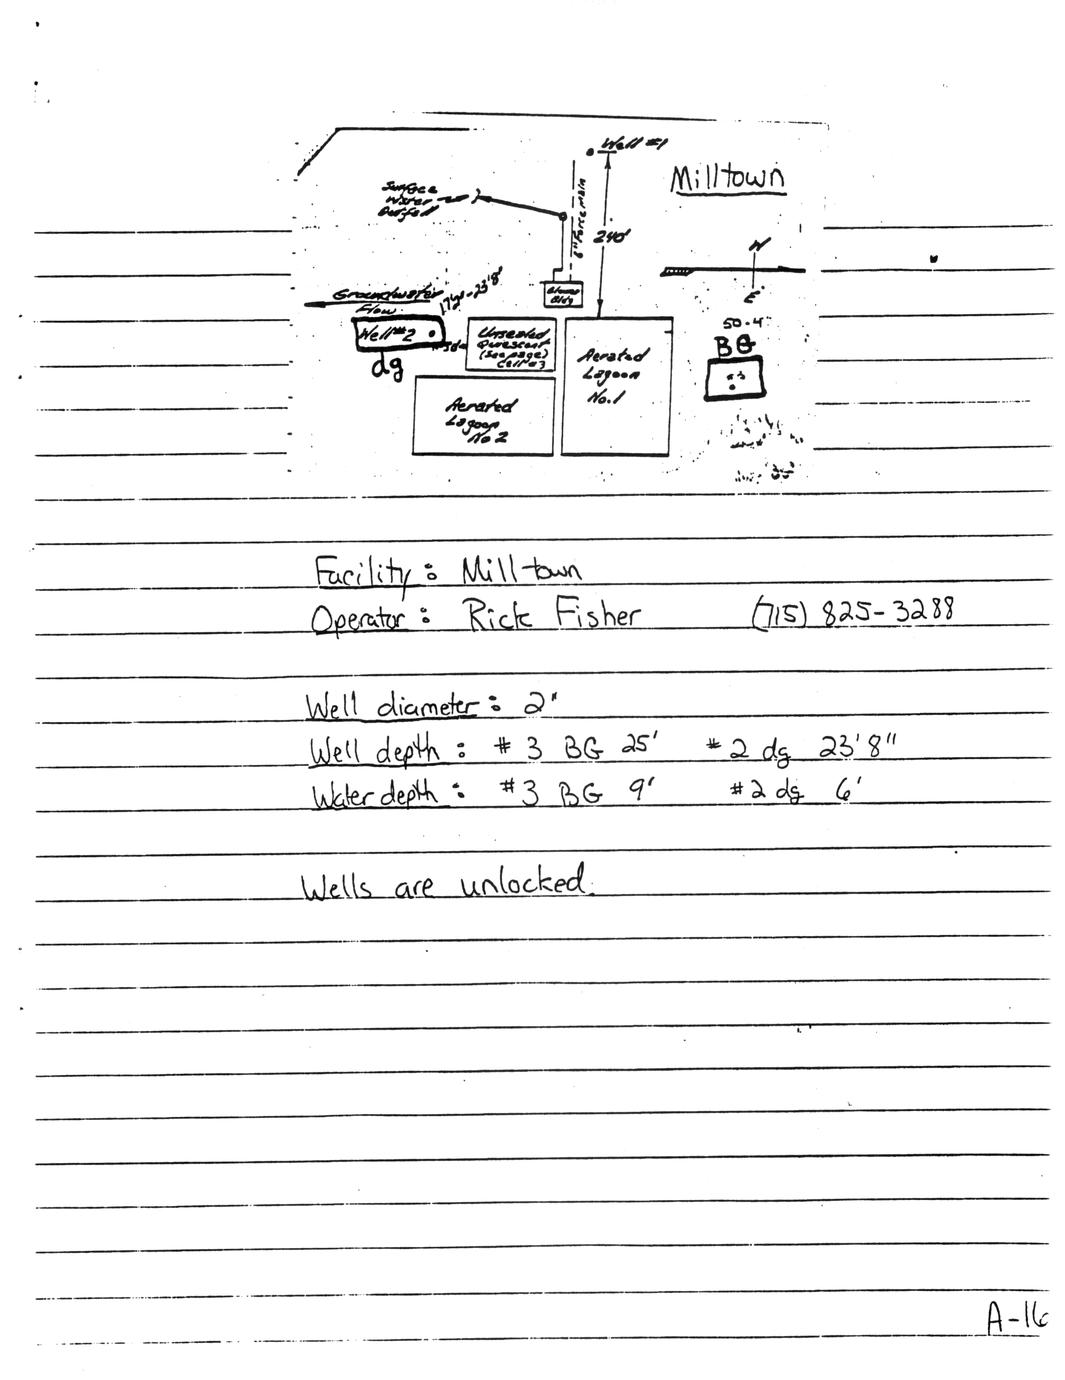 Well #1
Milltown
Surface
Water
Outfall
6" Force Main
240'
W
E
Groundwater
Flow
23'8"
Blower
Bldg
50-4"
BG
Well #2
dg
Unsealed
Quiescent
(Seepage)
Cell #3
Aerated
Lagoon
No.1
#3
Aerated
Lagoon
No 2
Facility: Milltown
Operator: Rick Fisher (715) 825-3288
Well diameter: 2"
Well depth: #3 BG 25' #2 dg 23'8"
Water depth: #3 BG 9' #2 dg 6'
Wells are unlocked.
A-16